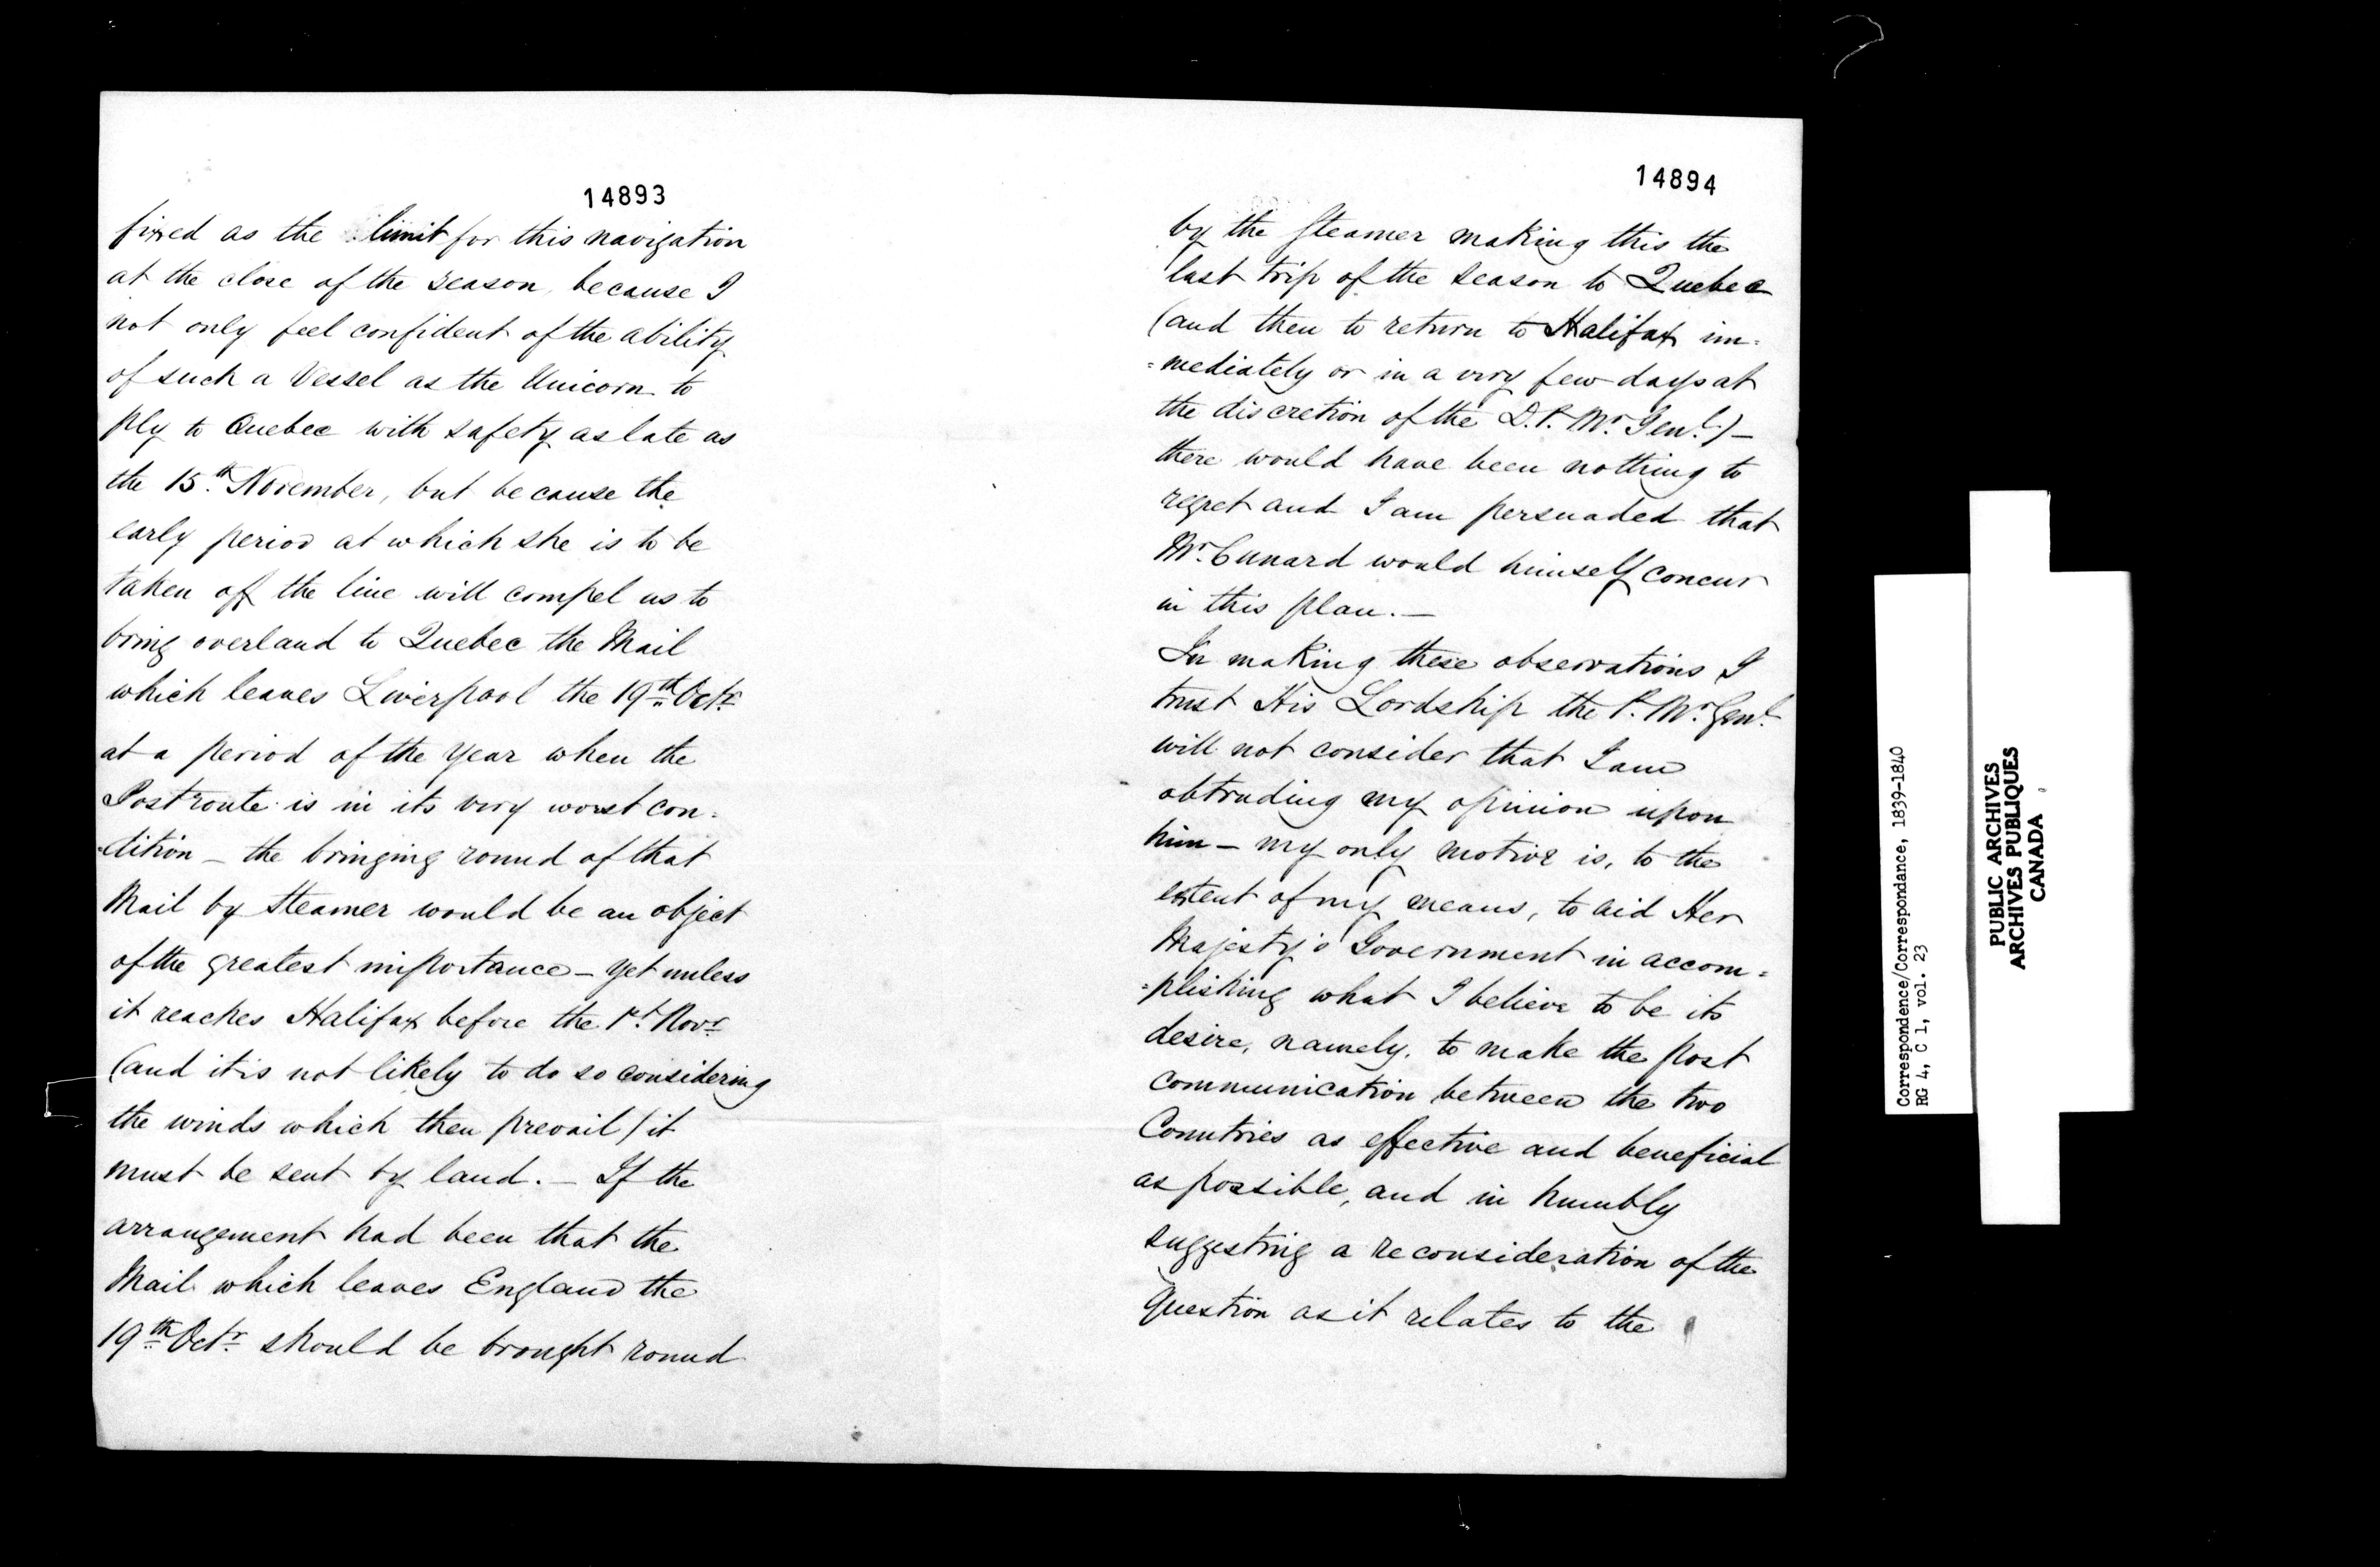 14893
fixed as the limit for this navigation
at the close of the season because I
not only feel confident of the ability
of such a Vessel as the Unicorn to
ply to Quebec with safety as late as
the 15.th November, but because the
early period at which she is to be
taken off the line will compel us to
bring overland to Quebec the Mail
which leaves Liverpool the 19th Octr
at a period of the Year when the
Post route is in its very worst con-
-dition – the bringing round of that
Mail by Steamer would be an object
of the greatest importance – yet unless
it reaches Halifax before the 1st Novr
(and it is not likely to do so considering
the winds which then prevail) it
must be sent by land. – If the
arrangement had been that the
Mail which leaves England the
19th Octr should be brought round
14894
by the Steamer making this the
last trip of the Season to Quebec
(and then to return to Halifax im-
=mediately or in a very few days at
the discretion of the D.P. Mr Genl.) –
there would have been nothing to
regret and I am persuaded that
Mr. Cunard would himself concur
in this plan. –
In making these observations I
trust His Lordship the P. Mr. Genl.
will not consider that I am
obtruding my opinion upon
him – my only motive is, to the
extent of my means, to aid Her
Majesty's Government in accom=
=plishing what I believe to be its
desire, namely, to make the post
communication between the two
Countries as effective and beneficial
as possible, and in humbly
suggesting a reconsideration of the
Question as it relates to the
Correspondence/Correspondance, 1839-1840
RG 4, C 1, vol. 23
PUBLIC ARCHIVES
ARCHIVES PUBLIQUES
CANADA